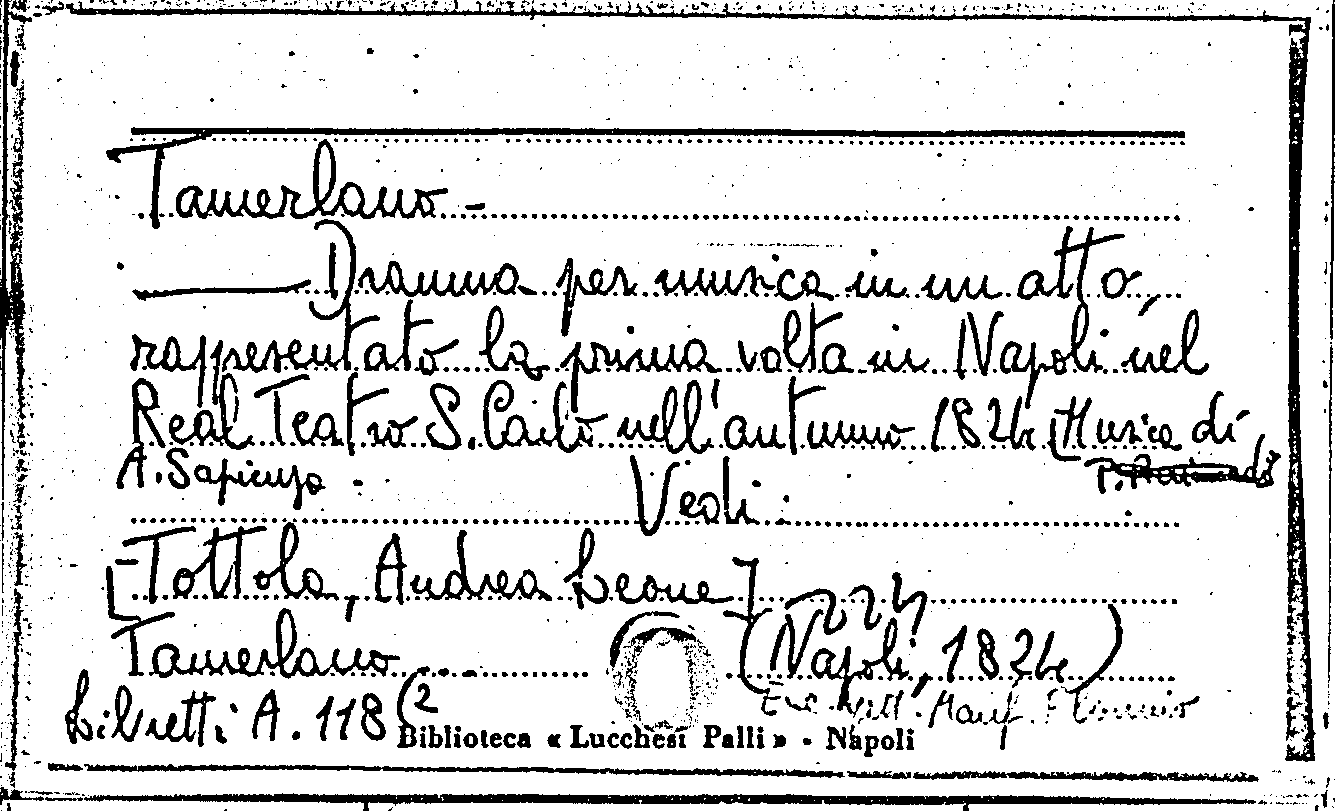 Tamerlano -
——— Dramma per musica in un atto,
rappresentato la prima volta in Napoli nel
Real Teatro S. Carlo nell'autunno 1824 [Musica di
A. Sapienza. Vedi:
[Tottola, Andrea Leone]
Tamerlano... (Napoli, 1824)
Libretti A. 118 (2
Biblioteca « Lucchesi Palli » - Napoli